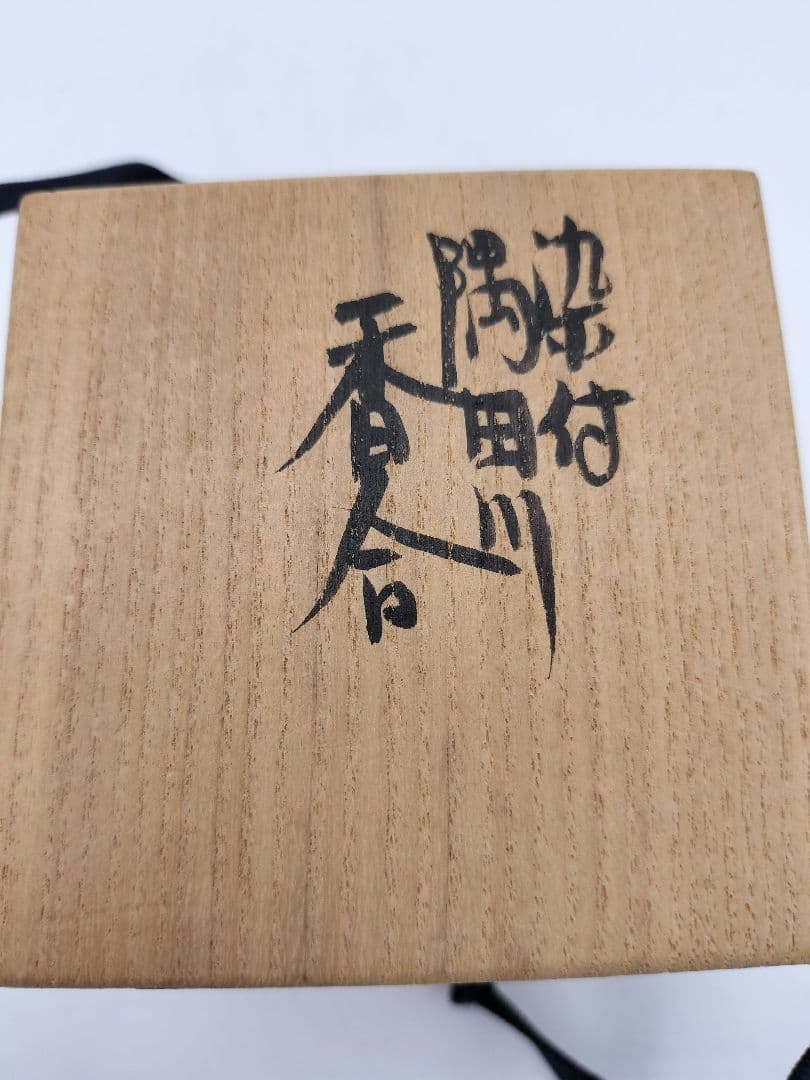 染付
隅田川
香合